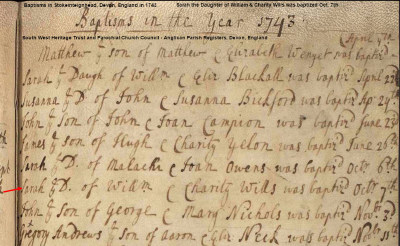 Baptisms in Stokeinteignhead, Devon, England in 1743 Sarah the Daughter of William & Charity Wills was baptized Oct. 7th
Baptisms in the Year 1743
South West Heritage Trust and Parochial Church Council - Anglican Parish Registers, Devon, England
April 7th
Matthew ye son of Matthew & Elizabeth was baptiz'd
Sarah ye Daugh of Willm & Eliz Blackall was baptiz'd April 22d
Susanna ye D. of John & Susanna Bickford was baptiz'd Apr 24th
John ye Son of John & Joan Campion was baptiz'd June 22d
James ye son of Hugh & Charity Yelon was baptiz'd June 26th
Sarah ye D. of Malachi & Joan Owens was baptiz'd Octr 6th
Sarah ye D. of Willm & Charity Wills was baptiz'd Octr 7th
John ye Son of George & Mary Nichols was baptiz'd Novr 3d
Gregory Andrews ye son of Aaron & Eliz Neck was baptiz'd Novr 11th